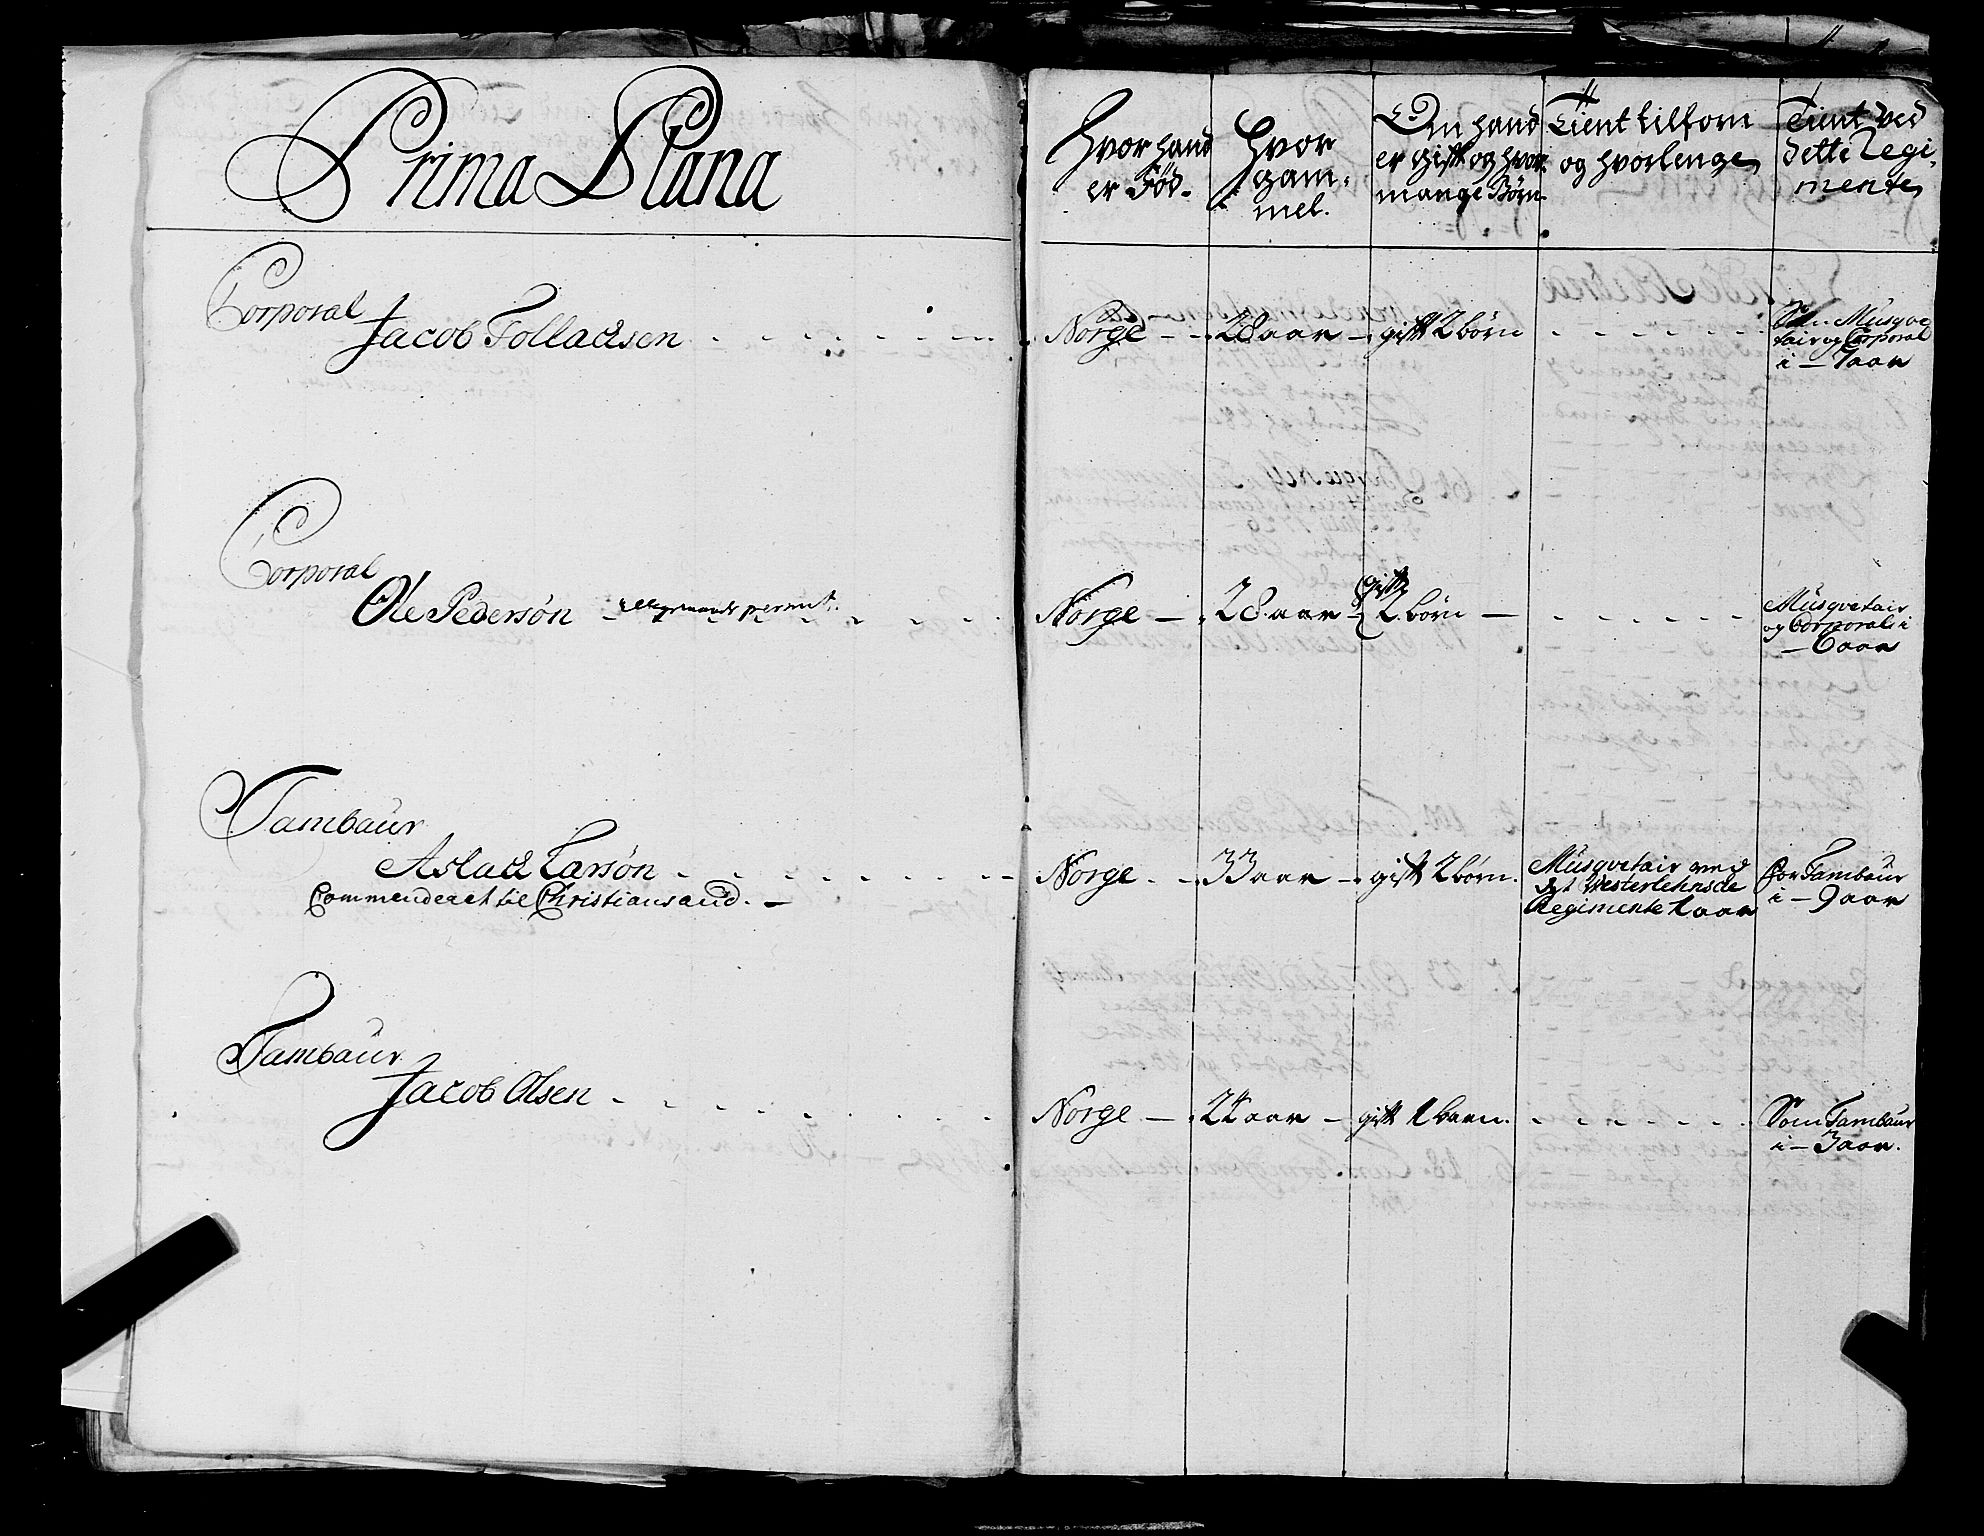 Prima Plana
Hvor hand
er Fød.
Hvor
gam-
mel.
Om hand
er gift og hvor
mange Børn
Tient tilforn
og hvorlenge
Tient ved
dette Regi-
mente
Corporal
Jacob Tolladsen
Norge
28 aar
gift 2 børn
Musqve
tair og Corporal
i 7 aar
Corporal
Ole Pedersøn permit.
Norge
28. aar
gift
2. børn
Musqvetair
og Corporal i
6 aar
Tambaur
Aslack Larsøn
Commenderet til Christiansand.
Norge
33 aar
gift 2 børn.
Musqvetair ved
det Westerlehnsde
Regimente 1 aar
For Tambaur
i 9 aar
Tambaur
Jacob Olsen
Norge
24 aar
gift 1 barn.
Som Tambaur
i 3 aar.